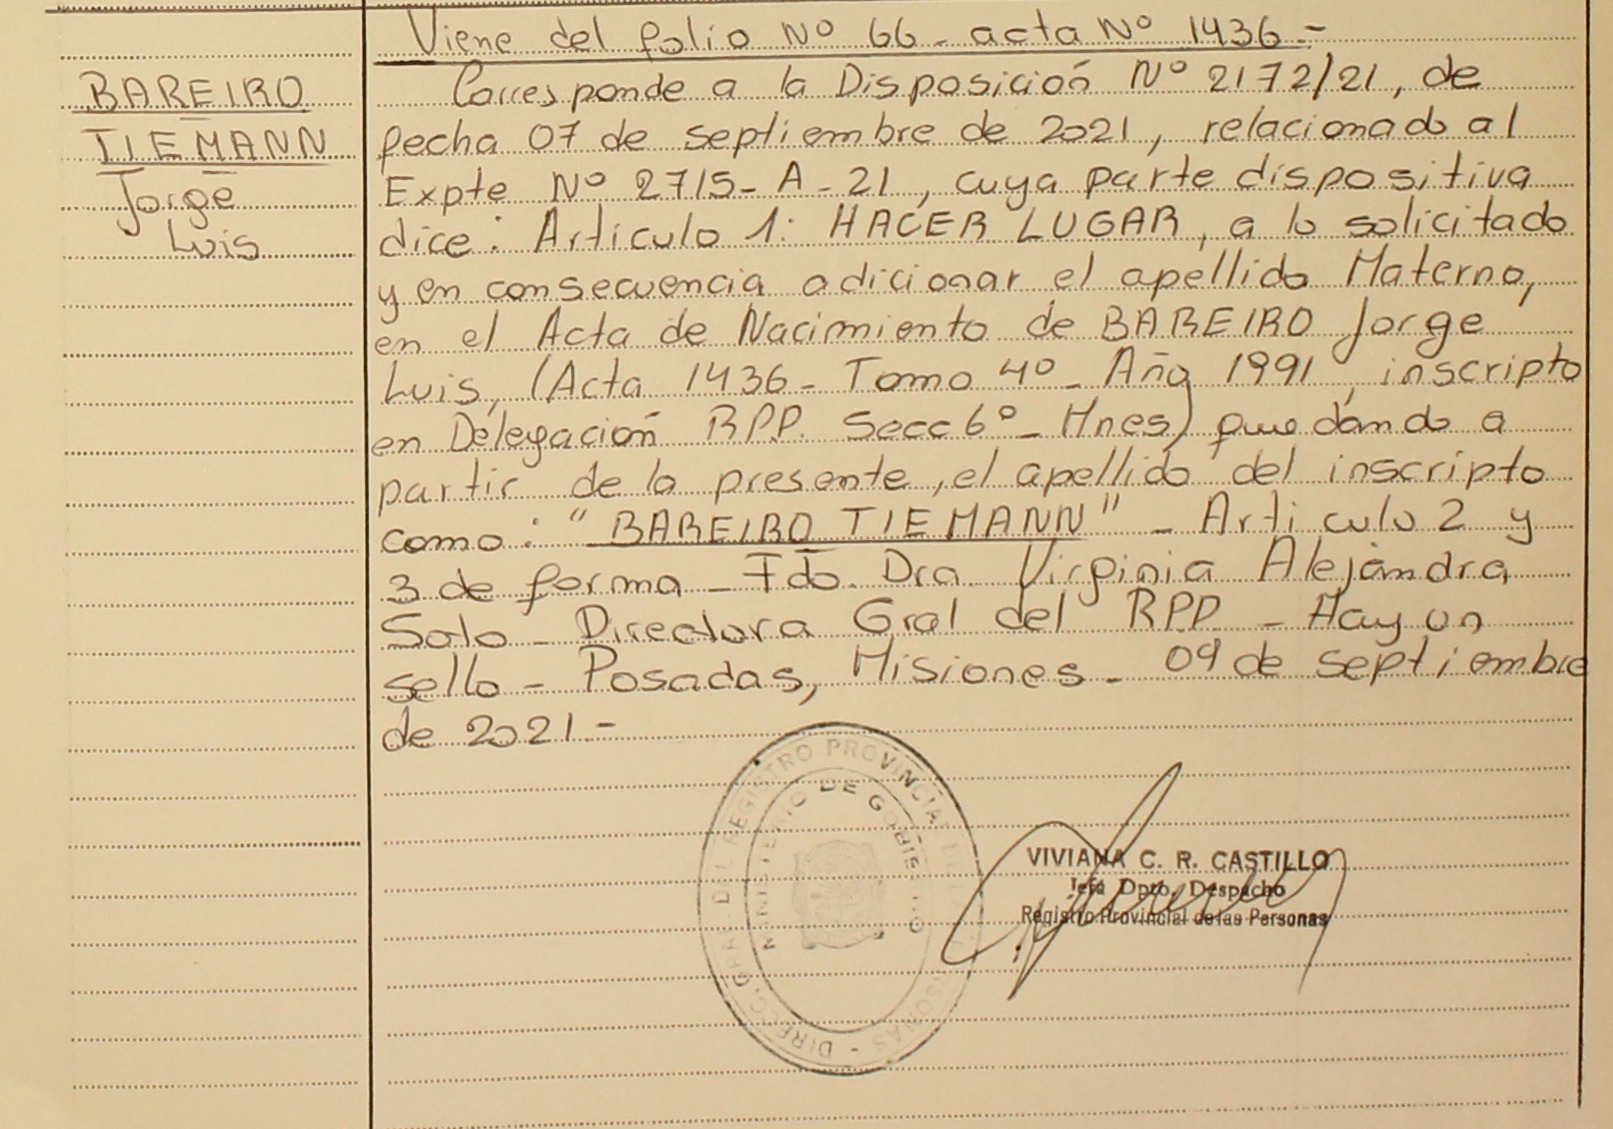 Viene del folio Nº 66 - acta Nº 1436.-
BAREIRO
TIEMANN
Jorge
Luis
Corresponde a la Disposición Nº 2172/21, de
fecha 07 de septiembre de 2021, relacionado al
Expte Nº 2715-A-21, cuya parte dispositiva
dice: Articulo 1: HACER LUGAR, a lo solicitado
y en consecuencia adicionar el apellido Materno,
en el Acta de Nacimiento de BAREIRO Jorge
Luis, (Acta 1436 - Tomo 4º - Año 1991, inscripto
en Delegación RPP. Secc 6º - Mnes) quedando a
partir de la presente, el apellido del inscripto
como: "BAREIRO TIEMANN" - Articulo 2 y
3 de forma - Fdo. Dra. Virginia Alejandra
Solo - Directora Gral del RPP - Hay un
sello - Posadas, Misiones - 09 de septiembre
de 2021.-
DIRECC. GRAL. DEL REGISTRO PROVINCIAL DE LAS PERSONAS -
MINISTERIO DE GOBIERNO
VIVIANA C. R. CASTILLO
Jefa Dpto. Despacho
Registro Provincial de las Personas